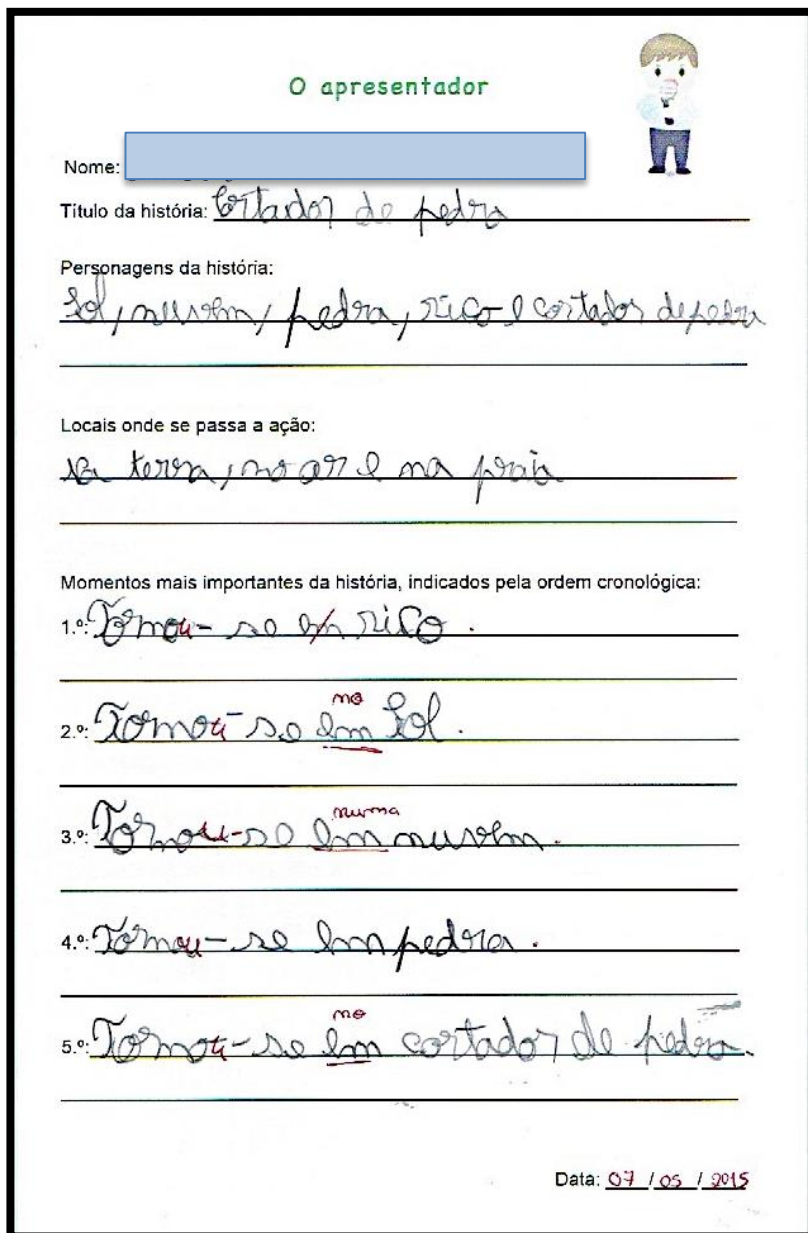 O apresentador
Nome:
Título da história: Cortador de pedra
Personagens da história:
Sol, nuvem, pedra, rico e cortador de pedra
Locais onde se passa a ação:
Na terra, no ar e na praia
Momentos mais importantes da história, indicados pela ordem cronológica:
1.º: Tornou-se em rico.
no
2.º: Tornou-se em Sol.
numa
3.º: Tornou-se em nuvem.
4.º: Tornou-se em pedra.
no
5.º: Tornou-se em cortador de pedra.
Data: 07 / 05 / 2015